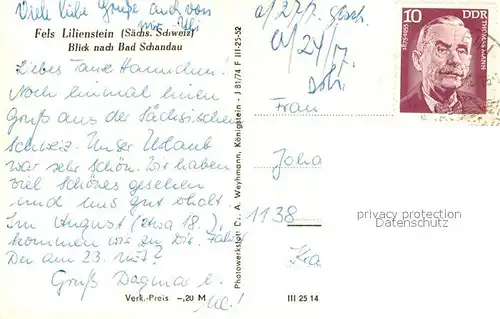 Viele liebe Grüße auch von
Fels Lilienstein (Sächs. Schweiz)
Blick nach Bad Schandau
Liebes Tante Hannchen.
Noch einmal einen
Gruß aus der Sächsischen
Schweiz. Unser Urlaub
war sehr schön. Wir haben
viel Schönes gesehen
und uns gut erholt.
Im August (etwa 18.)
kommen wir zu Dir.
Der am 23. mit?
Gruß Dagmar
Verk.-Preis -,20 M
Photowerkstatt D. A. Weyhmann, Königstein - J 81/74 F III-25-52
III 25 14
a/27/7.
a/24/7.
10
DDR
THOMAS MANN
1875-1955
Frau
Joha
1138
privacy protection
Datenschutz